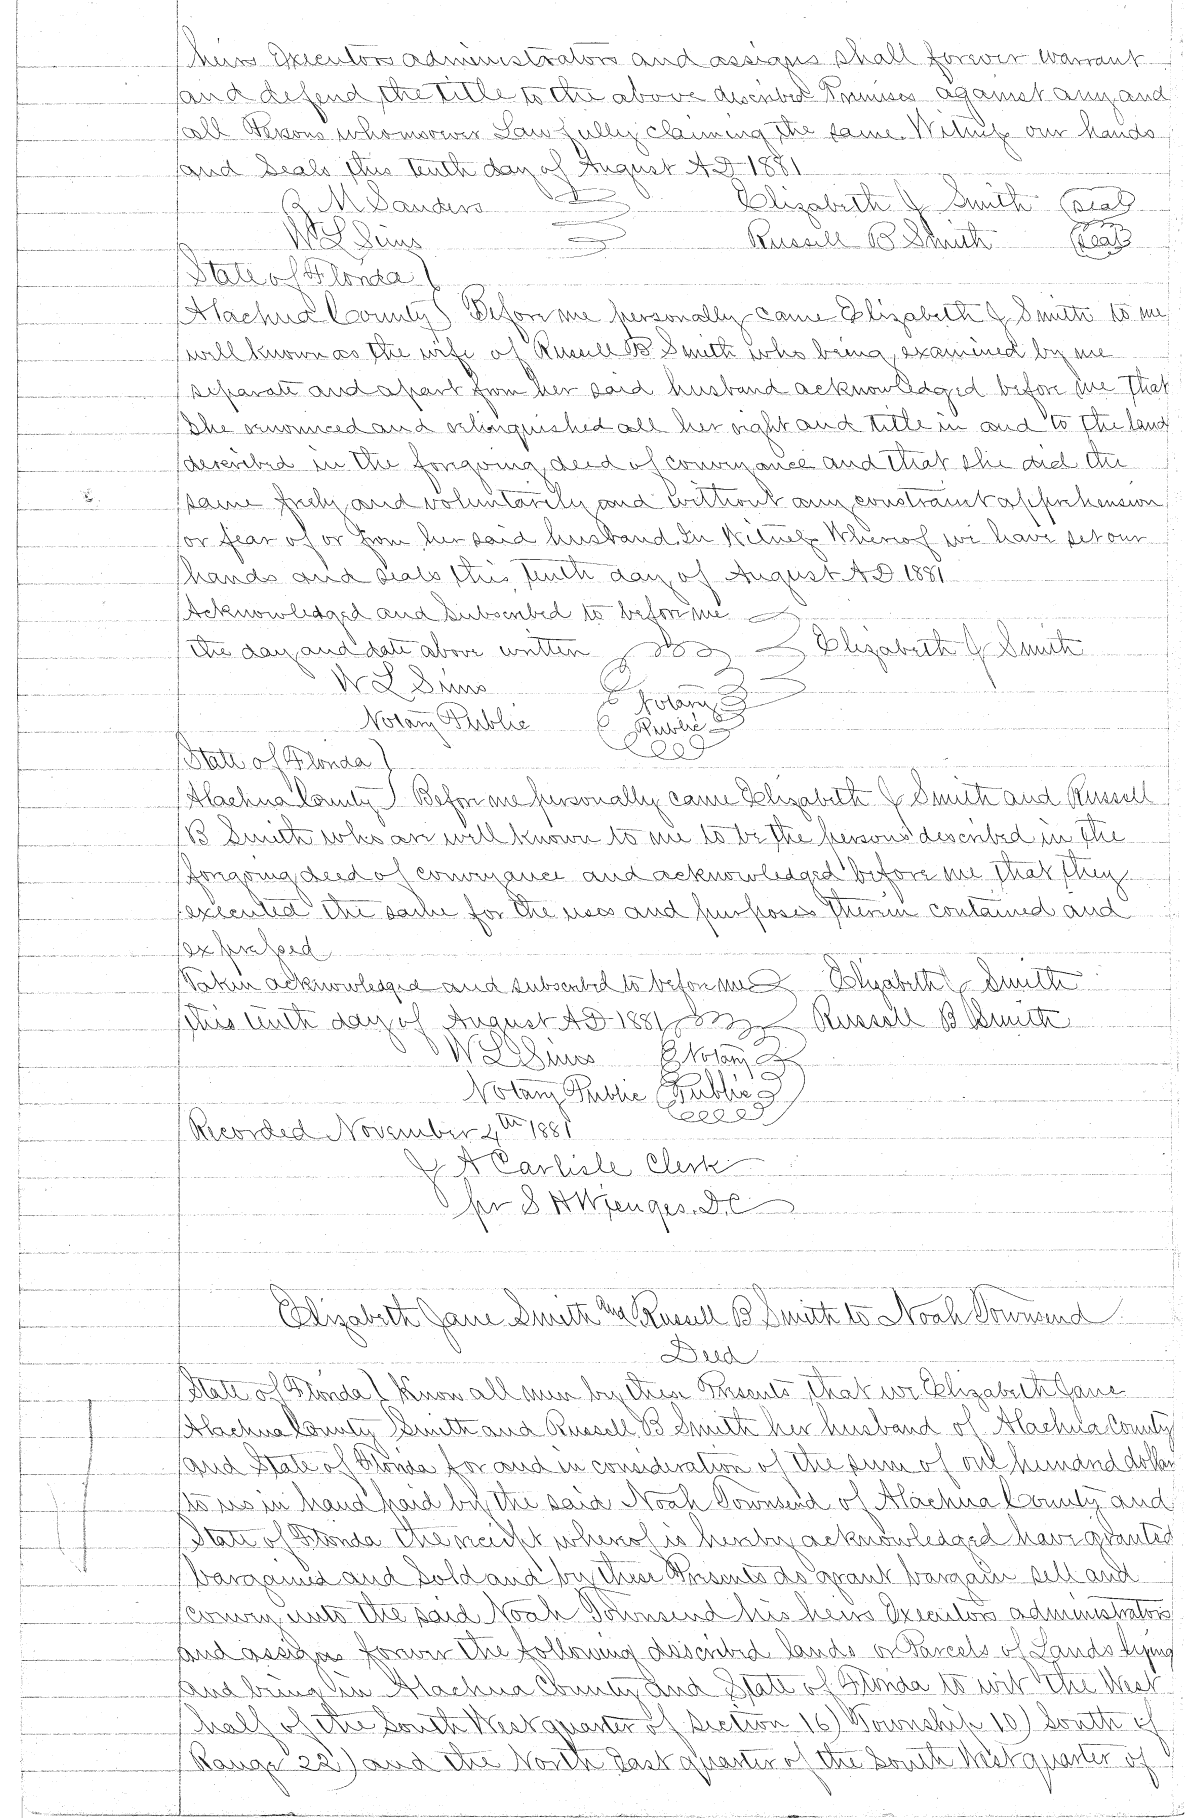 heirs Executors administrators and assigns shall forever warrant
and defend the title to the above described Premises against any and
all Persons whomsoever Lawfully claiming the same. Witness our hands
and Seals this tenth day of August AD 1881
M Sanders Elizabeth J Smith seal
W L Sims Russell B Smith seal
State of Florida
Alachua County Before me personally came Elizabeth J Smith to me
well known as the wife of Russell B Smith who being examined by me
separate and apart from her said husband acknowledged before me that
She renounced and relinquished all her right and title in and to the land
described in the forgoing deed of conveyance and that she did the
same freely and voluntarily and without any constraint apprehension
or fear of or from her said husband. In Witness Whereof we have set our
hands and seals this tenth day of August AD 1881
Acknowledged and Subscribed to before me
the day and date above written Elizabeth J Smith
W L Sims Notary
Notary Public Public
State of Florida
Alachua County Before me personally came Elizabeth J Smith and Russell
B Smith who are well known to me to be the persons described in the
forgoing deed of conveyance and acknowledged before me that they
executed the same for the uses and purposes therein contained and
expressed
Taken acknowledged and subscribed to before me Elizabeth J Smith
this tenth day of August AD 1881 Russell B Smith
W L Sims Notary
Notary Public Public
Recorded November 4th 1881
J A Carlisle Clerk
per S H Wienges. D.C
Elizabeth Jane Smith and Russell B Smith to Noah Townsend
Deed
State of Florida Know all men by these Presents that we Elizabeth Jane
Alachua County Smith and Russell B Smith her husband of Alachua County
and State of Florida for and in consideration of the sum of one hundred dollars
to us in hand paid by the said Noah Townsend of Alachua County and
State of Florida the receipt wherof is hereby acknowledged have granted
bargained and Sold and by these Presents do grant bargain sell and
convey unto the said Noah Townsend his heirs Executors administrators
and assigns forever the following described lands or Parcels of Lands lying
and being in Alachua County and State of Florida to wit the West
half of the South West quarter of Section 16) Township 10) South of
Range 22) and the North East quarter of the South West quarter of